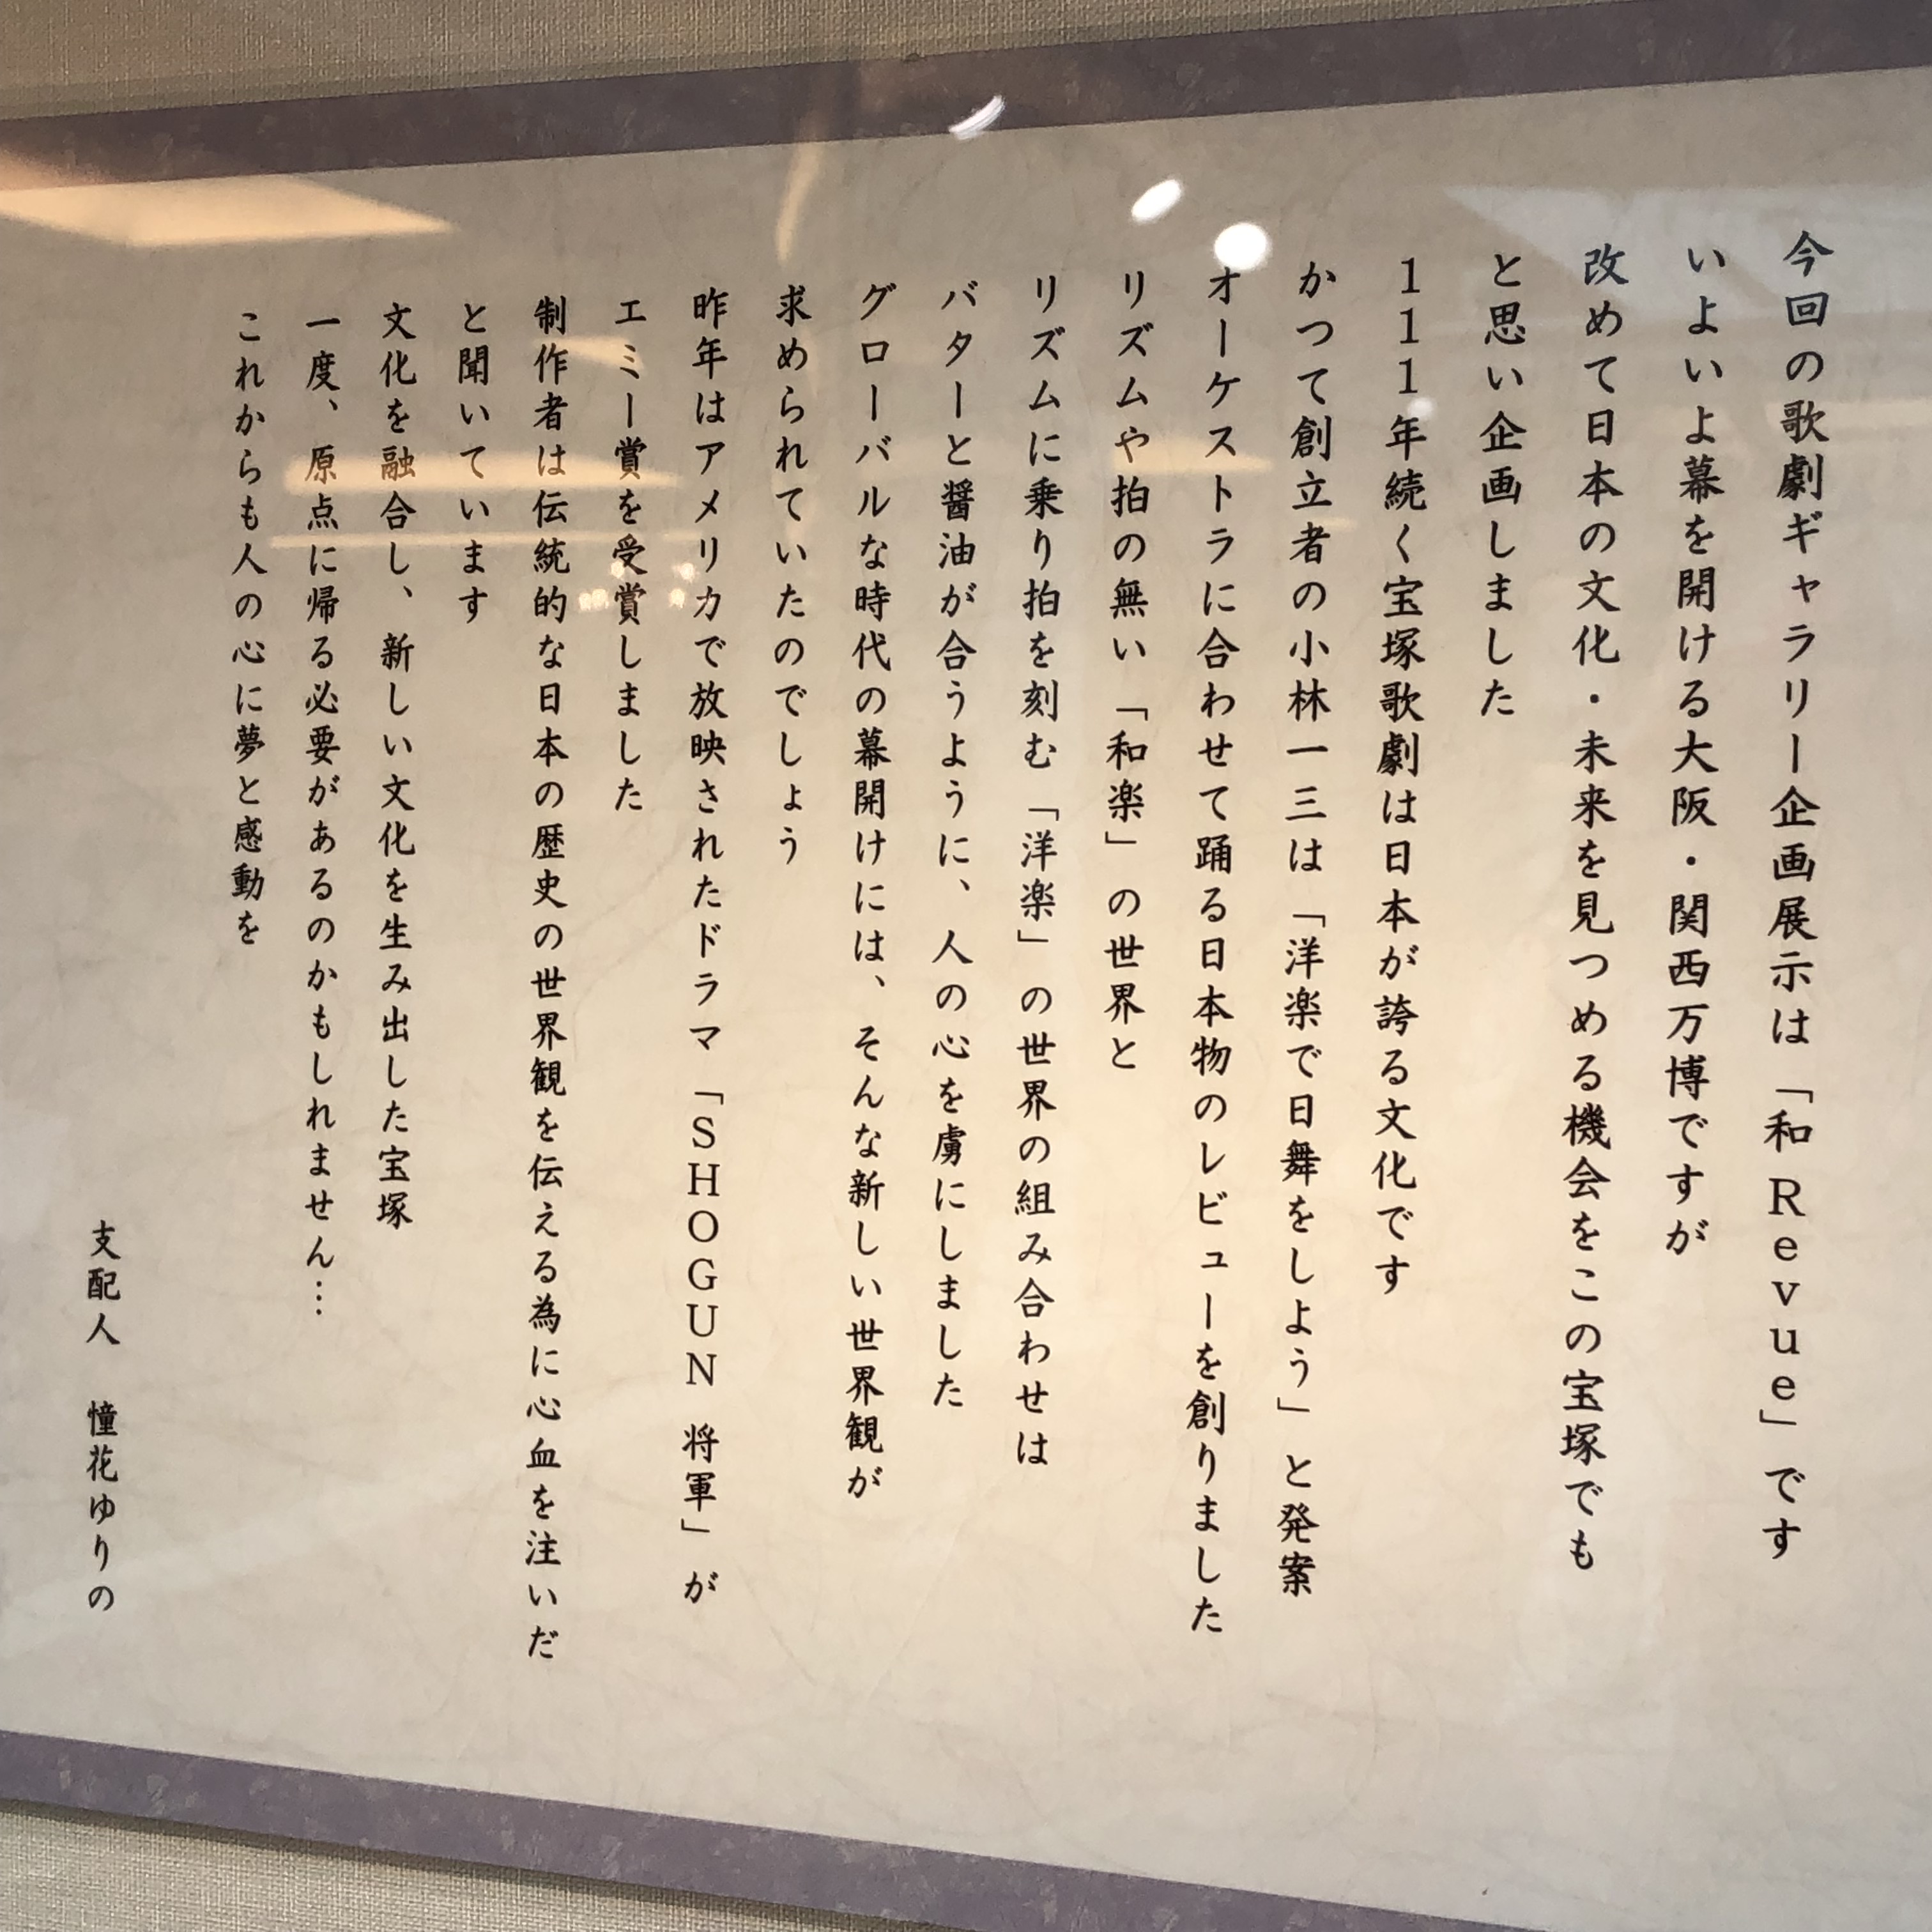 今回の歌劇ギャラリー企画展示は「和Revue」です
いよいよ幕を開ける大阪・関西万博ですが
改めて日本の文化・未来を見つめる機会をこの宝塚でも
と思い企画しました
111年続く宝塚歌劇は日本が誇る文化です
かつて創立者の小林一三は「洋楽で日舞をしよう」と発案
オーケストラに合わせて踊る日本物のレビューを創りました
リズムや拍の無い「和楽」の世界と
リズムに乗り拍を刻む「洋楽」の世界の組み合わせは
バターと醤油が合うように、人の心を虜にしました
グローバルな時代の幕開けには、そんな新しい世界観が
求められていたのでしょう
昨年はアメリカで放映されたドラマ「SHOGUN 将軍」が
エミー賞を受賞しました
制作者は伝統的な日本の歴史の世界観を伝える為に心血を注いだ
と聞いています
文化を融合し、新しい文化を生み出した宝塚
一度、原点に帰る必要があるのかもしれません…
これからも人の心に夢と感動を
支配人 憧花ゆりの